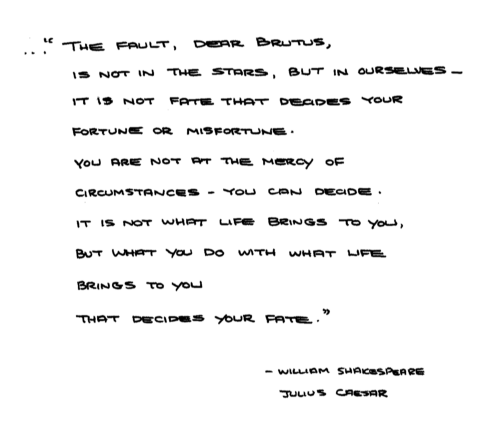 ..." THE FAULT, DEAR BRUTUS,
IS NOT IN THE STARS, BUT IN OURSELVES —
IT IS NOT FATE THAT DECIDES YOUR
FORTUNE OR MISFORTUNE.
YOU ARE NOT AT THE MERCY OF
CIRCUMSTANCES - YOU CAN DECIDE.
IT IS NOT WHAT LIFE BRINGS TO YOU,
BUT WHAT YOU DO WITH WHAT LIFE
BRINGS TO YOU
THAT DECIDES YOUR FATE."
- WILLIAM SHAKESPEARE
JULIUS CAESAR